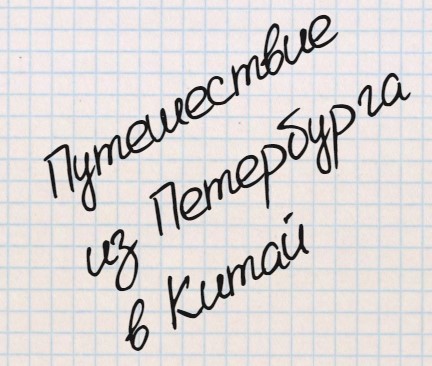 Путешествие
из Петербурга
в Китай